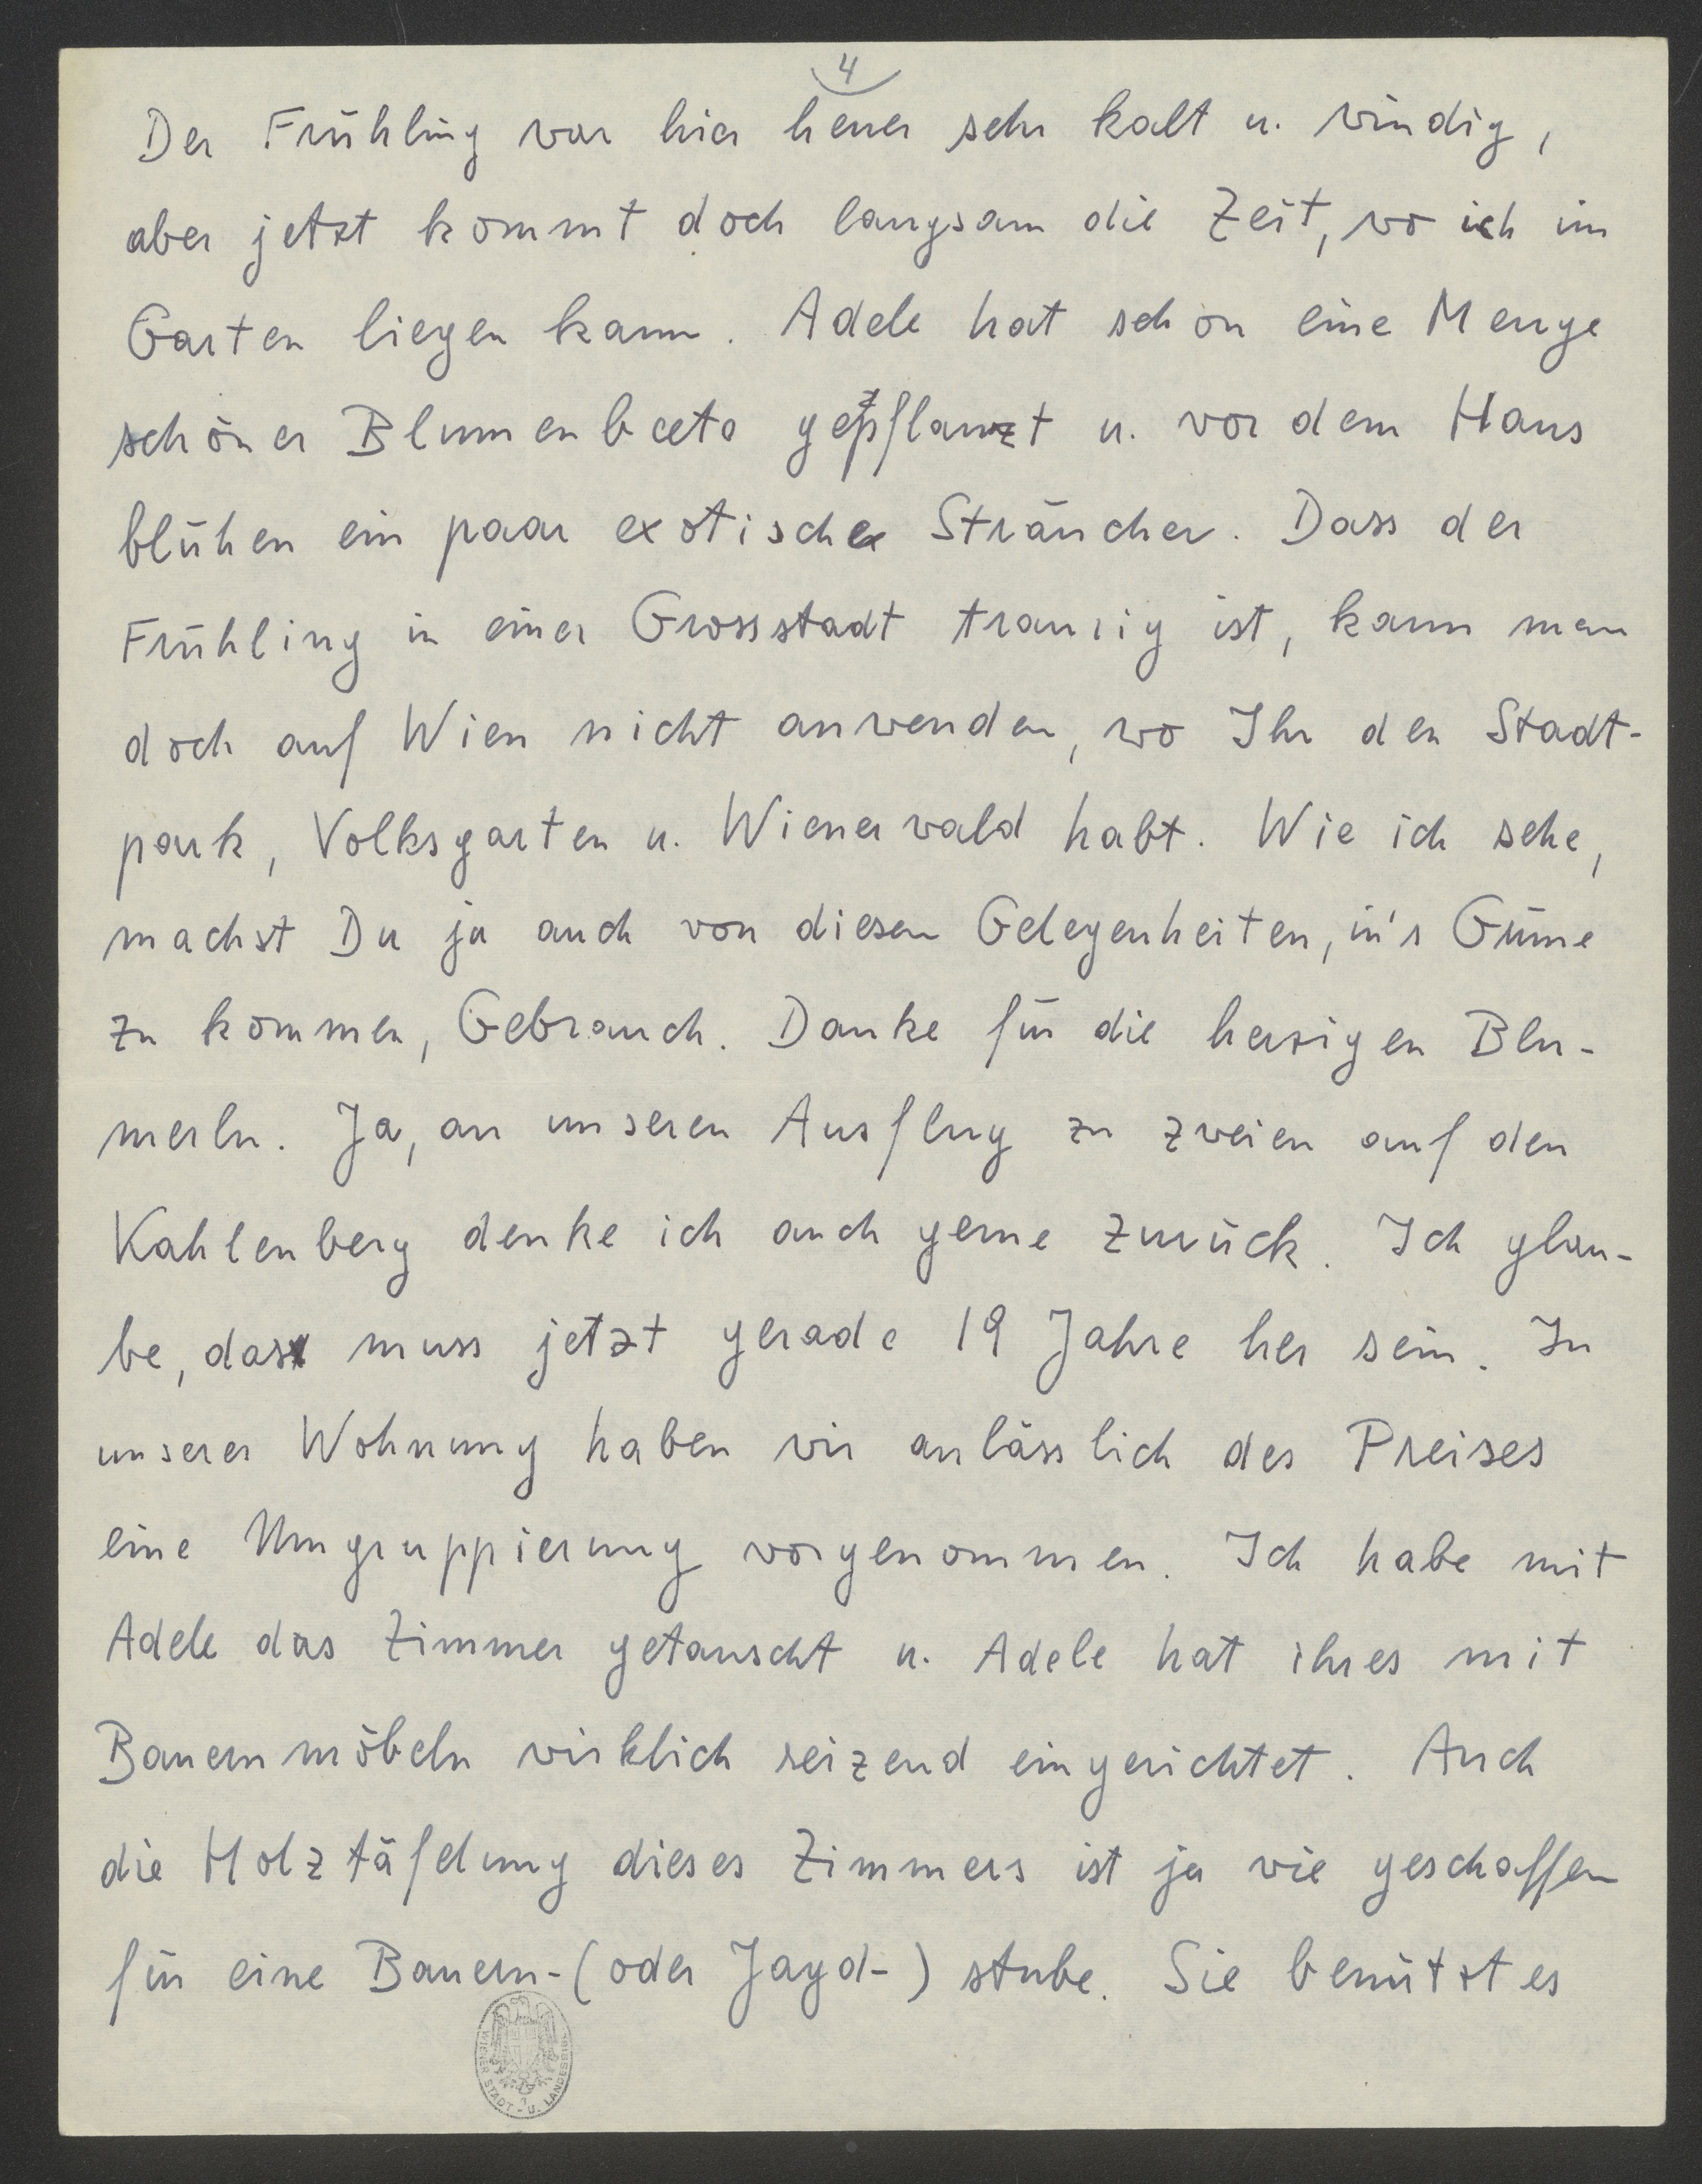 4
Der Frühling war hier heuer sehr kalt u. windig,
aber jetzt kommt doch langsam die Zeit, wo ich im
Garten liegen kann. Adele hat schon eine Menge
schöner Blumenbeete gepflanzt u. vor dem Haus
blühen ein paar exotische Sträucher. Dass der
Frühling in einer Grossstadt traurig ist, kann man
doch auf Wien nicht anwenden, wo Ihr den Stadt-
park, Volksgarten u. Wienerwald habt. Wie ich sehe,
machst Du ja auch von diesen Gelegenheiten, in's Grüne
zu kommen, Gebrauch. Danke für die herzigen Blu-
merln. Ja, an unseren Ausflug zu zweien auf den
Kahlenberg denke ich auch gerne zurück. Ich glau-
be, das muss jetzt gerade 19 Jahre her sein. In
unserer Wohnung haben wir anlässlich des Preises
eine Umgruppierung vorgenommen. Ich habe mit
Adele das Zimmer getauscht u. Adele hat ihres mit
Bauernmöbeln wirklich reizend eingerichtet. Auch
die Holztäfelung dieses Zimmers ist ja wie geschaffen
für eine Bauern-(oder Jagd-) stube. Sie benützt es
WIENER STADT- U. LANDESBIBL.